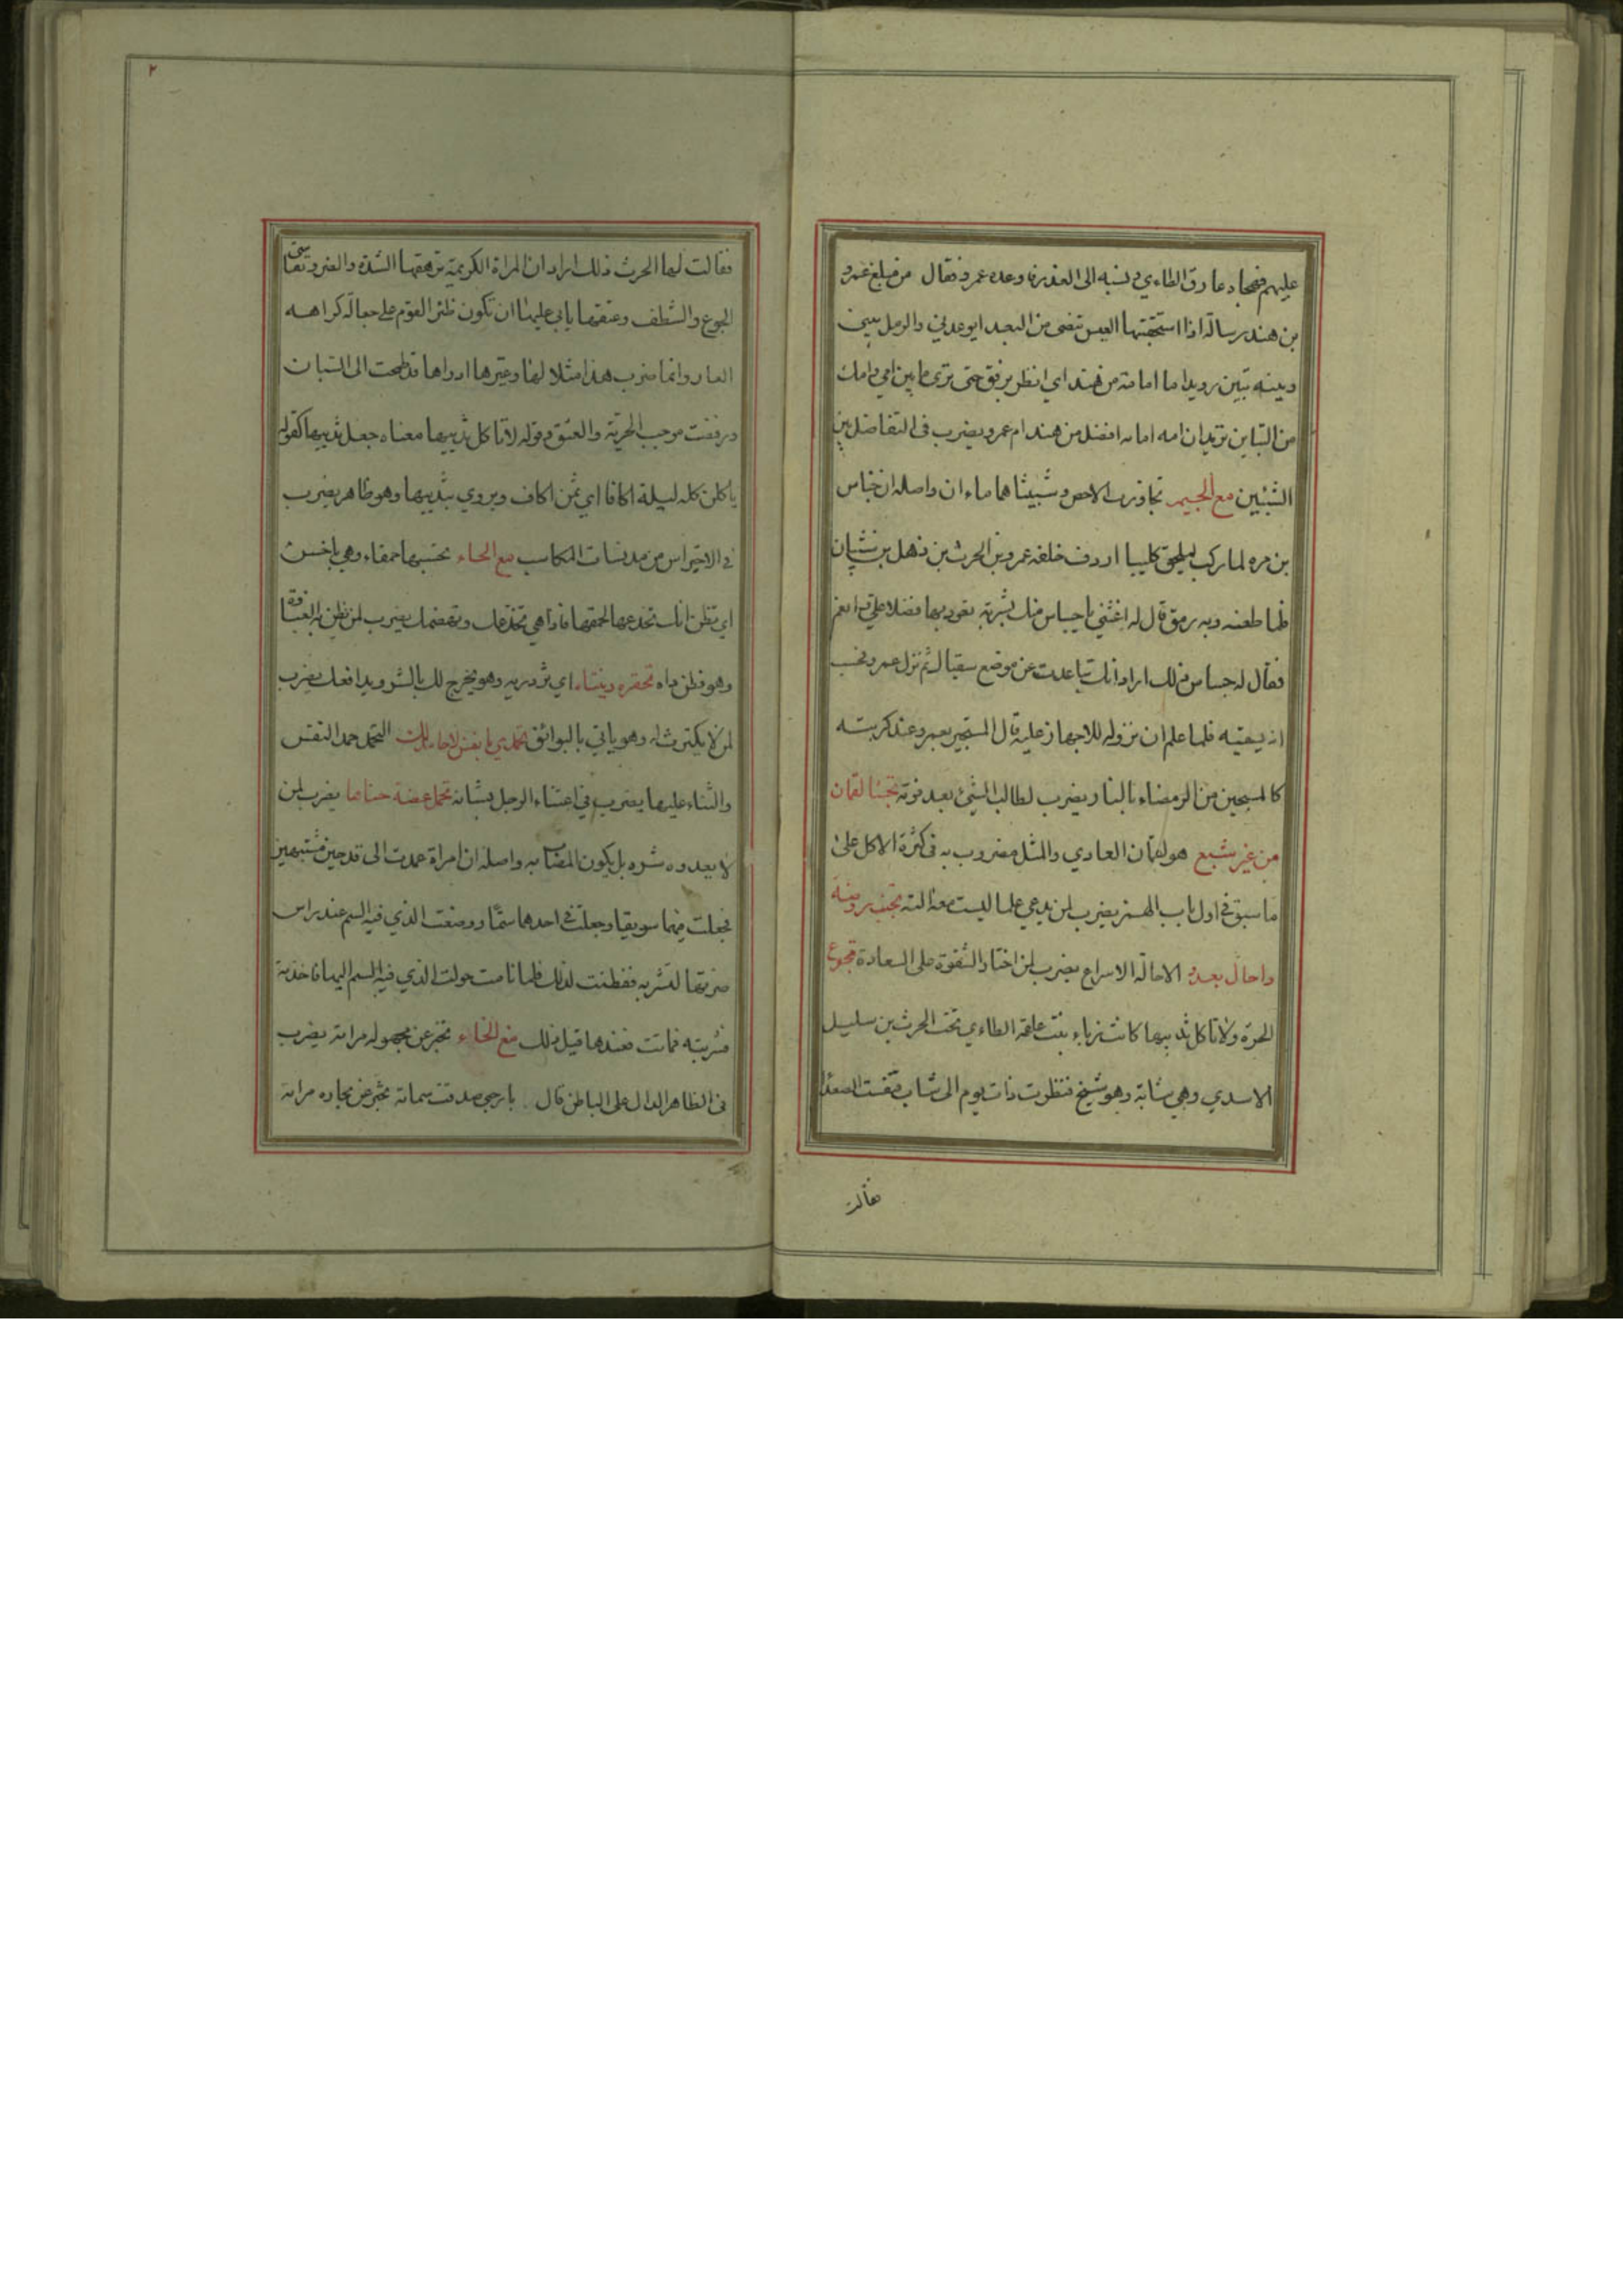 عليهم فهجاه عارق الطاءي ونسبه الى الغدر فاوعده عمرو فقال من مبلغ عمرو
بن هند رسالة اذا استحقبتها العيس تنضى من البعد ايوعدني والرمل بيني
وبينه تبين رويدا ما امامة من هند اي انظر برفق حتى ترى ما بين امي وامك
من التباين يريد ان امه امامه افضل من هند ام عمرو يضرب فى التفاضل بين
الشيئين مع الجيم تجاوزت الاحص وشبيثا هما ماءان واصله ان جساس
بن مره لما ركب ليلحق كليبا اردف خلفه عمرو بن الحرث بن ذهل بن شيبان
فلما طعنه وبه رمق قال له اغثني يا جساس منك بشربة تعود بها فضلا علي وانعم
فقال له جساس ذلك اراد انك تباعدت عن موضع سقياك ثم نزل عمرو فحسب
انه يسقيه فلما علم ان نزوله للاجهاز عليه قال المستجير بعمرو عند كربته
كالمستجير من الرمضاء بالنار يضرب لطالب الشيء بعد فوته تجشا لقمان
من غير شبع هو لقمان العادي والمثل مضروب به فى كثرة الاكل على
ما سبق في اول باب الهمز يضرب لمن يدعي علما ليست معه الته تجنب روضة
واحال يعدو الاحالة الاسراع يضرب لمن اختار الشقوة على السعادة تجوع
الحرة ولا تاكل ثدييها كانت زباء بنت علقمة الطاءي تحت الحرث بن سليل
الاسدي وهي شابة وهو شيخ فنظرت ذات يوم الى شاب فتنفست الصعدا
فقالت
٢
فقالت لها الحرث ذلك اراد ان المراة الكريمة ترهقها الشدة والضر وتقاسى
الجوع والشظف وعتقها يابى عليها ان تكون ظئر القوم على جعالة كراهه
العار وانما ضرب هذا مثلا لها وعيرها اذ راها قد طمحت الى الشبان
ورفضت موجب الحرية والعتق وقوله لا تاكل ثدييها معناه جعل ثدييها كقوله
ياكلن كل ليلة اكافا اي ثمن اكاف ويروي بثدييها وهو ظاهر يضرب
في الاحتراس من مدنسات المكاسب مع الحاء تحسبها حمقاء وهي باخس
اي تظن انك تخدعها لحمقها فاذا هي تخدعك وتهضمك يضرب لمن تظن به الغباوة
وهو فطن داه تحقره وينتاء اي تزدريه وهو يخرج لك بالشر ويدافعك يضرب
لمن لا يكترث له وهو ياتي بالبوائق تحمدي يا نفس لا حامد لك التحمد حمد النفس
والثناء عليها يضرب في اعتناء الرجل بشانه تحمل عضة جناها يضرب لمن
لا يعدوه شره بل يكون المصاب به واصله ان امراة عمدت الى قدحين مشتبهين
فجعلت فيهما سويقا وجعلت في احدهما سمّا ووضعت الذي فيه السم عند راس
ضرتها لتشربه ففطنت لذلك فلما نامت حولت الذي فيه السم اليها فاخذته
فشربته فماتت فعندها قيل ذلك مع الخاء تخبر عن مجهوله مراته يضرب
فى الظاهر الدال على الباطن قال